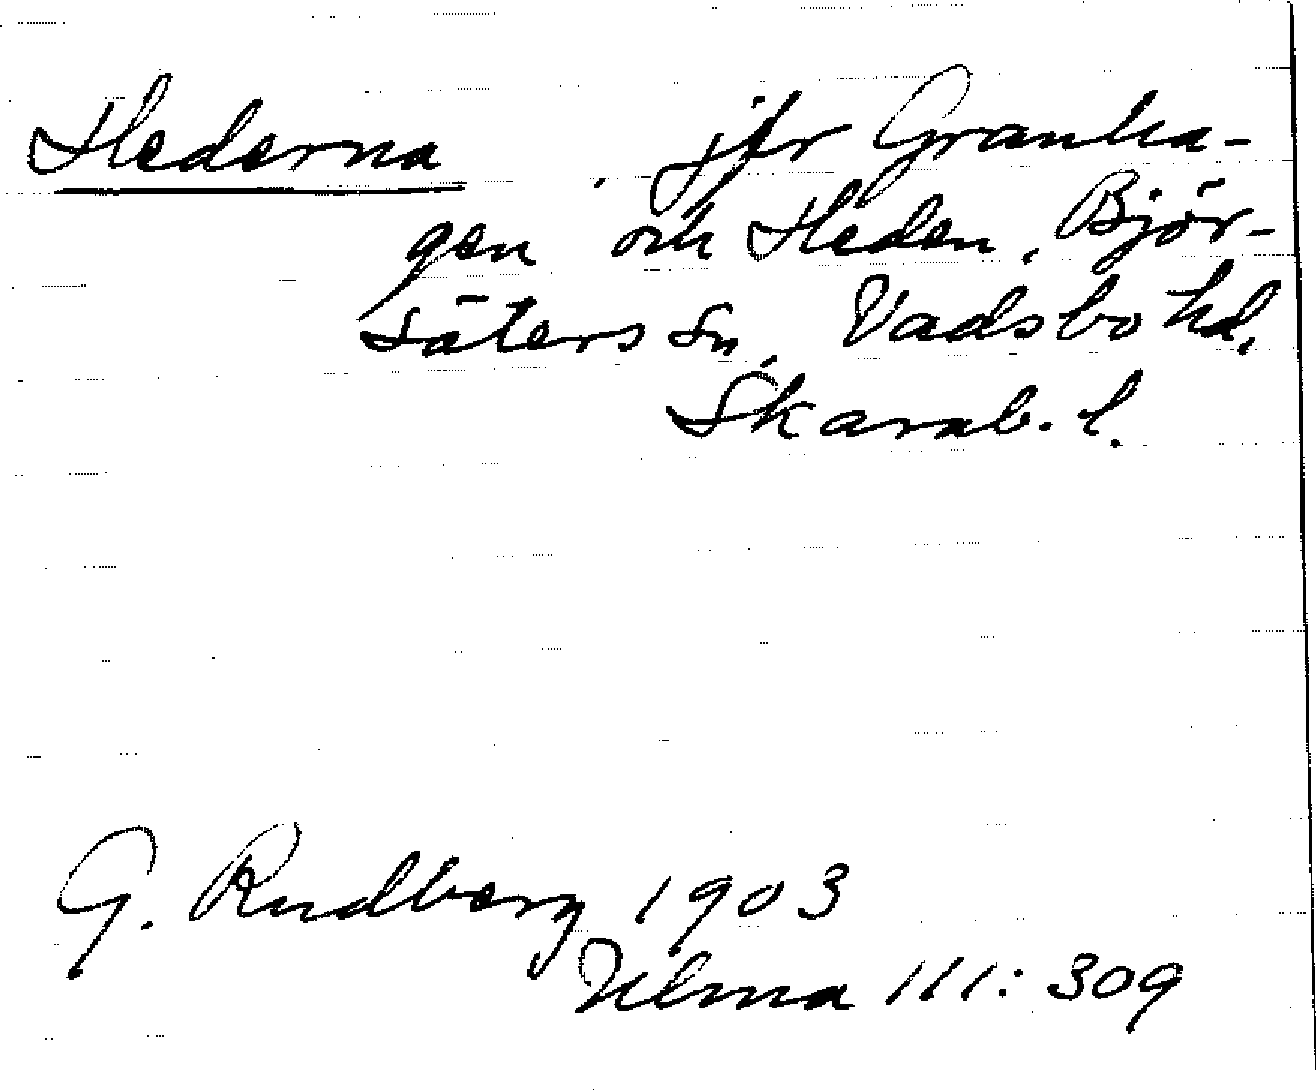 Hederna jfr Granha-
gen och Heden, Björ-
säters sn, Vadsbo hd,
Skarab. l.
G. Rudberg 1903
Ulma 111: 309